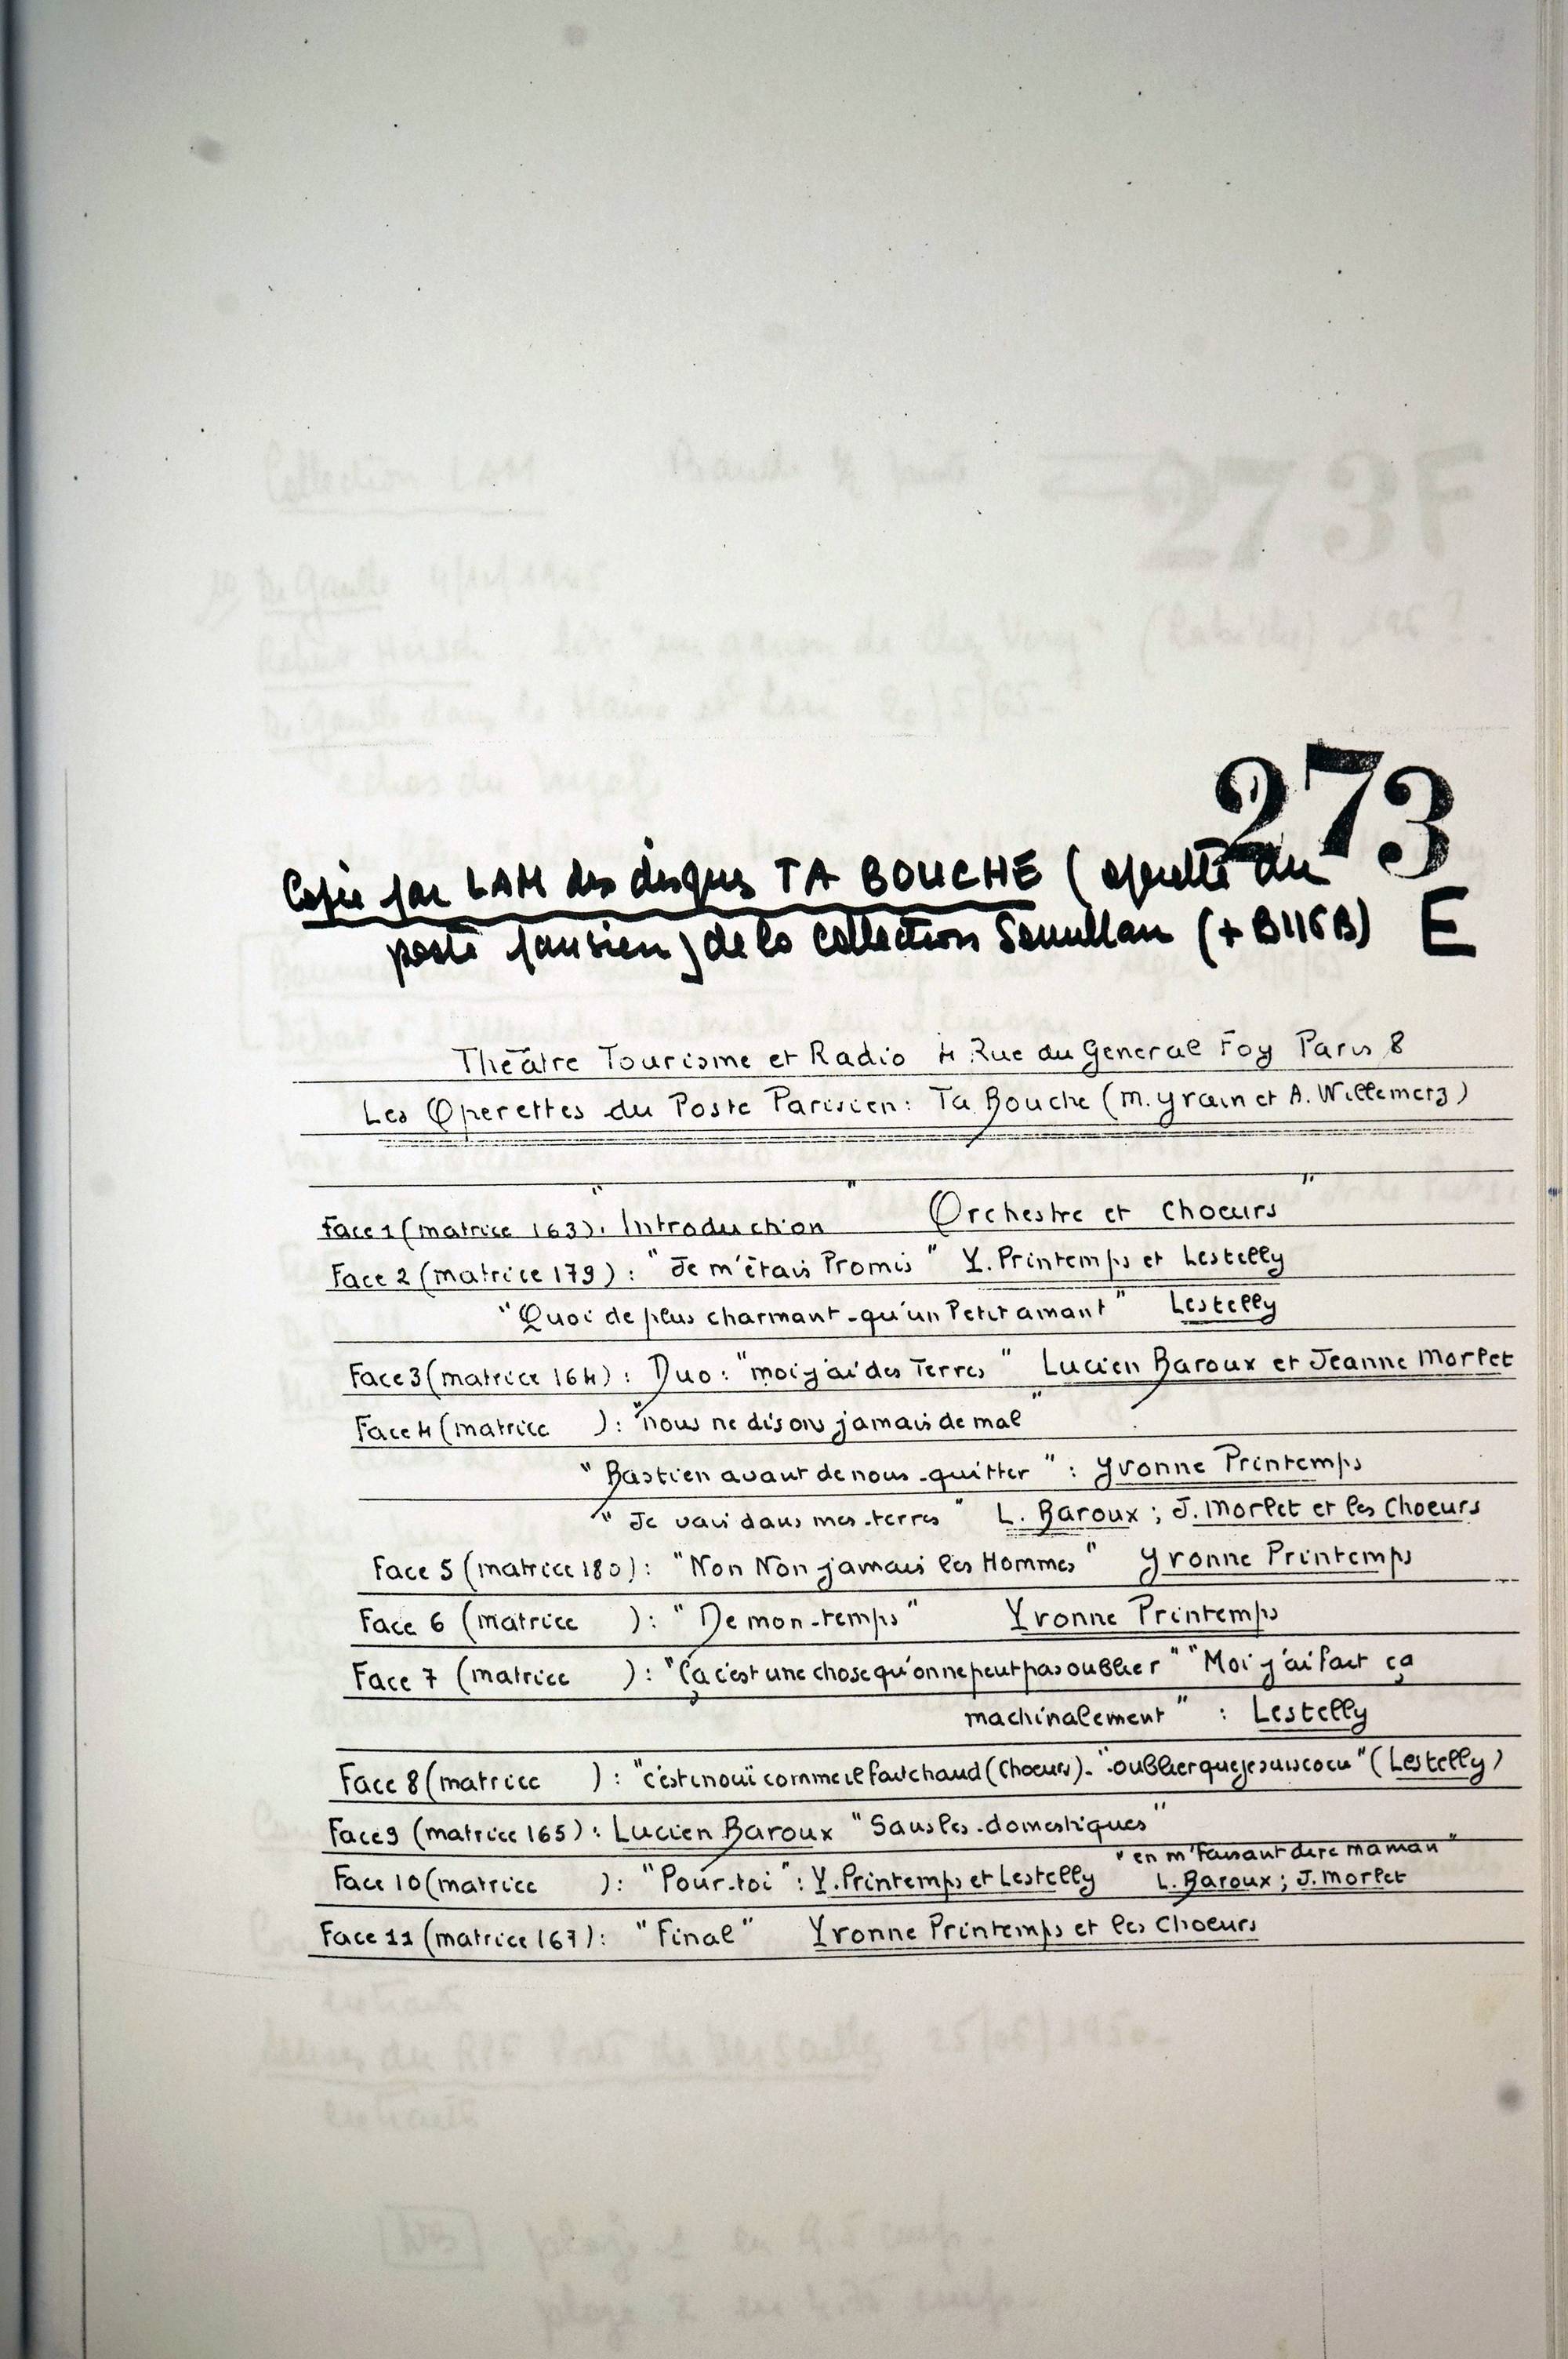 273
Copie par LAM des disques TA BOUCHE ( opérette du
poste parisien) de la collection (+ B116B) E
Théâtre Tourisme et Radio 4 Rue du General Foy Paris 8
Les Operettes du Poste Parisien : Ta Bouche (M. Yvain et A. Willemetz)
Face 1 (matrice 163). "Introduction" Orchestre et Choeurs "
Face 2 (matrice 179) : "Je m'étais Promis" Y. Printemps et Lestelly
"Quoi de plus charmant qu'un Petit amant" Lestelly
Face 3 (matrice 164) : Duo : "moi j'ai des Terres" Lucien Baroux et Jeanne Morlet
Face 4 (matrice ) : "nous ne disons jamais de mal"
"Bastien avant de nous quitter" : Yvonne Printemps
"Je vais dans mes terres" L. Baroux ; J. Morlet et les Choeurs
Face 5 (matrice 180) : "Non Non jamais les Hommes" Yvonne Printemps
Face 6 (matrice ) : "De mon temps" Yvonne Printemps
Face 7 (matrice ) : "ça c'est une chose qu'on ne peut pas oublier" "Moi j'ai fait ça
machinalement" : Lestelly
Face 8 (matrice ) : "c'est inouï comme il fait chaud (Choeurs). "oublier que je suis cocu" (Lestelly)
Face 9 (matrice 165) : Lucien Baroux "Sans les domestiques"
Face 10 (matrice ) : "Pour toi" : Y. Printemps et Lestelly "en m'faisant dire maman"
L. Baroux ; J. Morlet
Face 11 (matrice 167) : "Final" Yvonne Printemps et les Choeurs